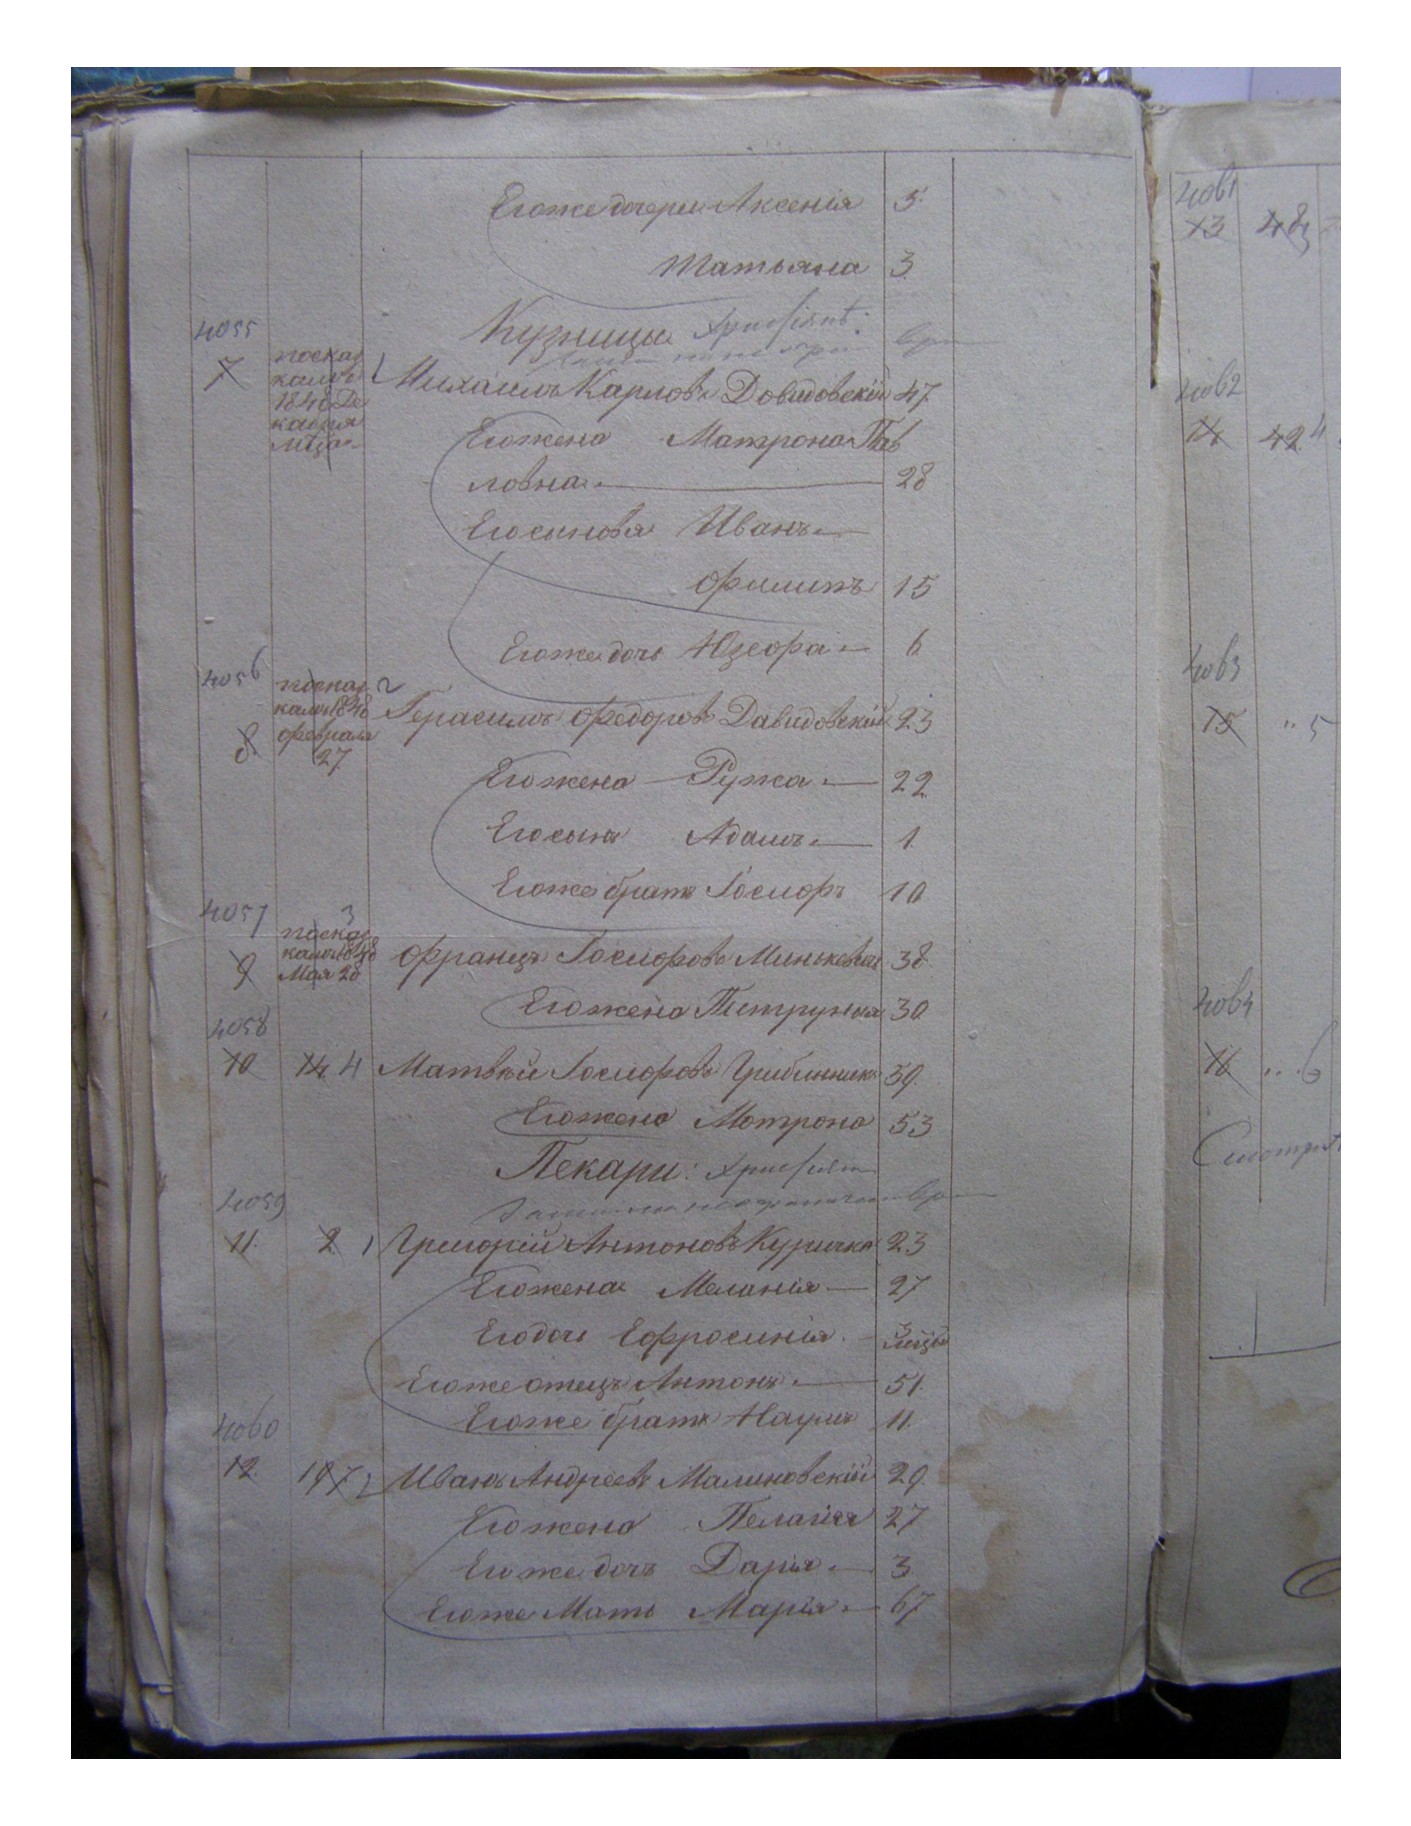 Егоже дочери Аксенія 5.
Татьяна 3.
4055
Кузницы Христіянъ:
7 посказ
камъ
1840 Де
кабря
мца
1 Михаилъ Карловъ Довидовскій 47.
Егожена Матрона Пав
ловна 28
Егосыновя Иванъ
Филипъ 15
Егоже дочь Юзефа 6
4056
8 посказ
камъ 1848
февраля
27
2 Герасимъ Федоровъ Давидовскій 23
Егожена Ружа 22
Егосынъ Адамъ 1.
Егоже братъ Іосифъ 10
4057
9 посказ
камъ 1848
Мая 28
3
Францъ Іосифовъ Минкевичъ 38.
Егожена Петрунеля 30
4058
10 14 4 Матвѣй Іосифовъ Грибинникъ 59.
Егожена Мотрона 53
Пекари: Христіян
4059
11. 2 1 Григорій Антоновъ Куричка 23
Егожена Меланія 27
Егодочь Ефросинія 3
мцы
Егоже отецъ Антонъ 51.
Егоже братъ Наумъ 11.
4060
12. 197 2 Иванъ Андреевъ Малиновскій 29.
Егожена Пелагія 27
Егоже дочь Дарія 3
Егоже Мать Марія 67
4061
13 48
4062
14 42 4
4063
15 " 5
4064
16 ... 6
Смотрит